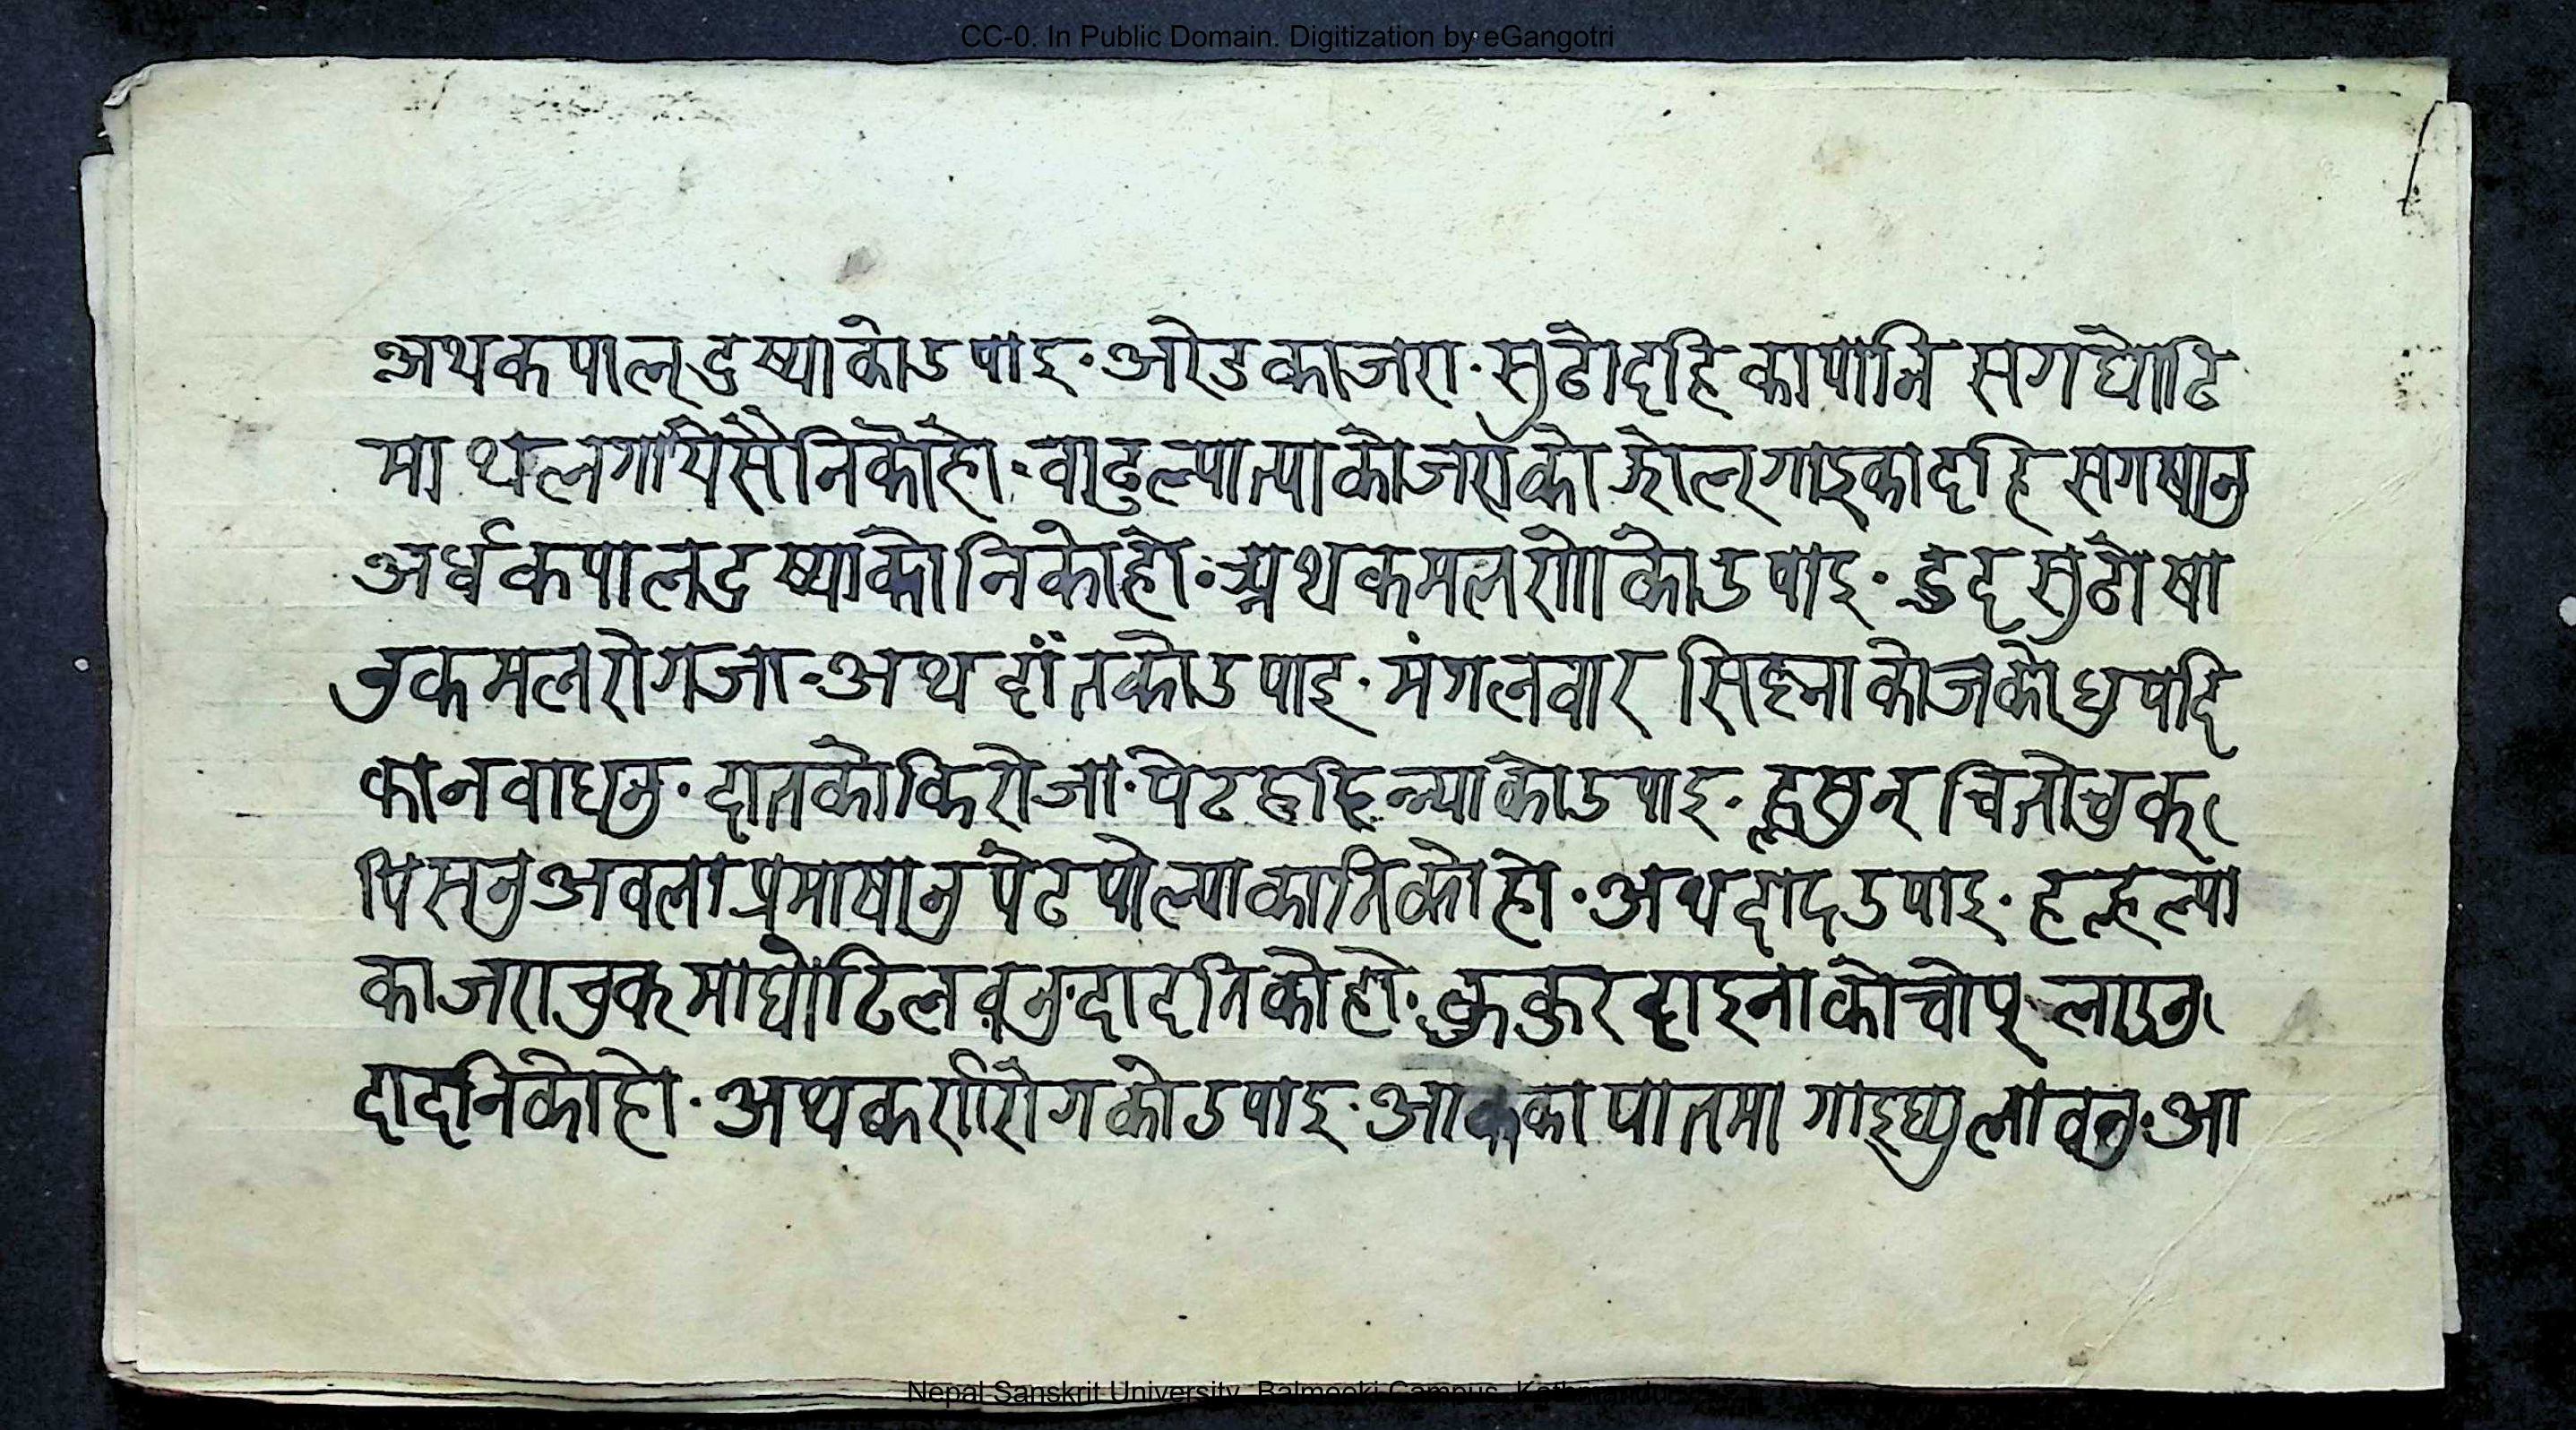 CC-0. In Public Domain. Digitization by eGangotri
अथकपालदुष्याकोउपाइ॰अरेडकाजरा॰सुठोदहिकापानि सगघोटि
माथलगायिसैनिकोहो॰वाटुल्पात्याकोजराको झोल्गाइकादहि सगषानु
अर्धकपालदुष्याकोनिकोहो॰अथकमलरोगकोउपाइ॰दुदसुठोषा
नुकमलरोगजा॰अथदांतकोउपाइ॰मंगलवार सिह्नाकोजकोधुपदि
कानवाधनु॰दातकोकिरोजा॰पेट कोउपाइ॰ चितोचुक्
पिसनुअवलाप्रमाषानु पेटपोल्याकानिकोहो॰अथदादउपाइ॰हल्हल्या
काजराचुकमाघोटिलवनु॰दादनिकोहो॰कुकुरदाइनाकोचोप्लाउनु
दादनिकोहो॰अथकर्णरोगकोउपाइ॰आककापातमा गाइघ्युलावनु॰आ
Nepal Sanskrit University, Balmeeki Campus, Kathmandu